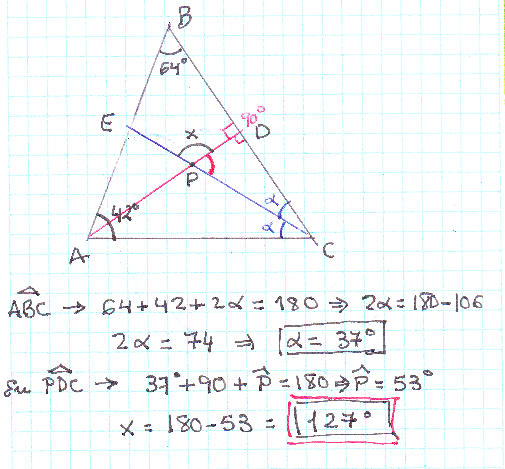 B
64°
90°
E
x
D
P
42°
α
α
A
C
ABC → 64+42+2α = 180 ⇒ 2α = 180-106
2α = 74 ⇒ α = 37°
En PDC → 37°+90+P̂ = 180 ⇒ P̂ = 53°
x = 180-53 = 127°